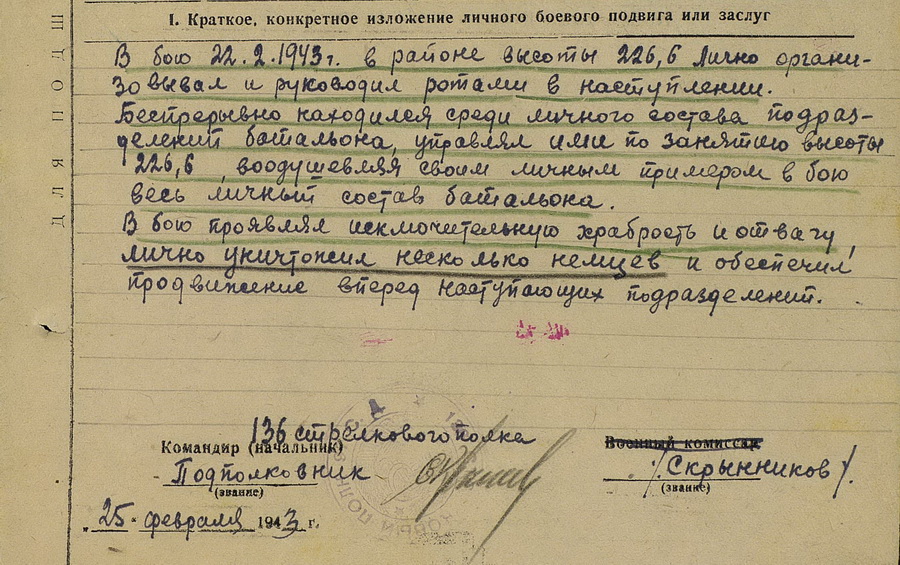 I. Краткое, конкретное изложение личного боевого подвига или заслуг
В бою 22.2.1943г. в районе высоты 226,6 лично органи-
зовывал и руководил ротами в наступлении.
Беспрерывно находился среди личного состава подраз-
делений батальона, управлял ими по занятию высоты
226,6, воодушевляя своим личным примером в бою
весь личный состав батальона.
В бою проявлял исключительную храбрость и отвагу,
лично уничтожил несколько немцев и обеспечил
продвижение вперед наступающих подразделений.
136 стрелкового полка
Командир (начальник)
Военный комиссар
Подполковник
/Скрынников/
(звание)
(звание)
„25" февраля 1943 г.
ДЛЯ ПОДШ